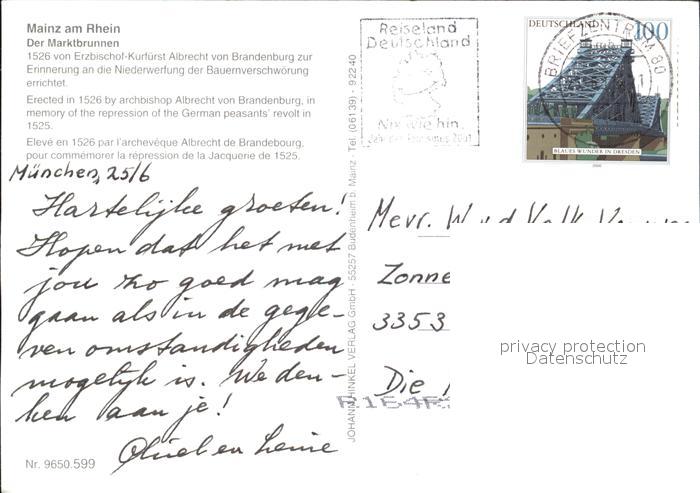 Mainz am Rhein
Der Marktbrunnen
1526 von Erzbischof-Kurfürst Albrecht von Brandenburg zur
Erinnerung an die Niederwerfung der Bauernverschwörung
errichtet.
Erected in 1526 by archbishop Albrecht von Brandenburg, in
memory of the repression of the German peasants' revolt in
1525.
Elevé en 1526 par l'archevéque Albrecht de Brandebourg,
pour commémorer la répression de la Jacquerie de 1525.
München, 25/6
Hartelijke groeten!
Hopen dat het met
jou zo goed mag
gaan als in de gege-
ven omstandigheden
mogelijk is. We den-
ken aan je!
en
Nr. 9650.599
JOHANN HINKEL VERLAG GmbH · 55257 Budenheim b. Mainz · Tel. (06139) · 92240
Reiseland
Deutschland
Nix wie hin.
DEUTSCHLAND 100
BRIEFZENTRUM 80
BLAUES WUNDER IN DRESDEN
2000
Mevr. W. v d
Zonne
3353
Die
privacy protection
Datenschutz